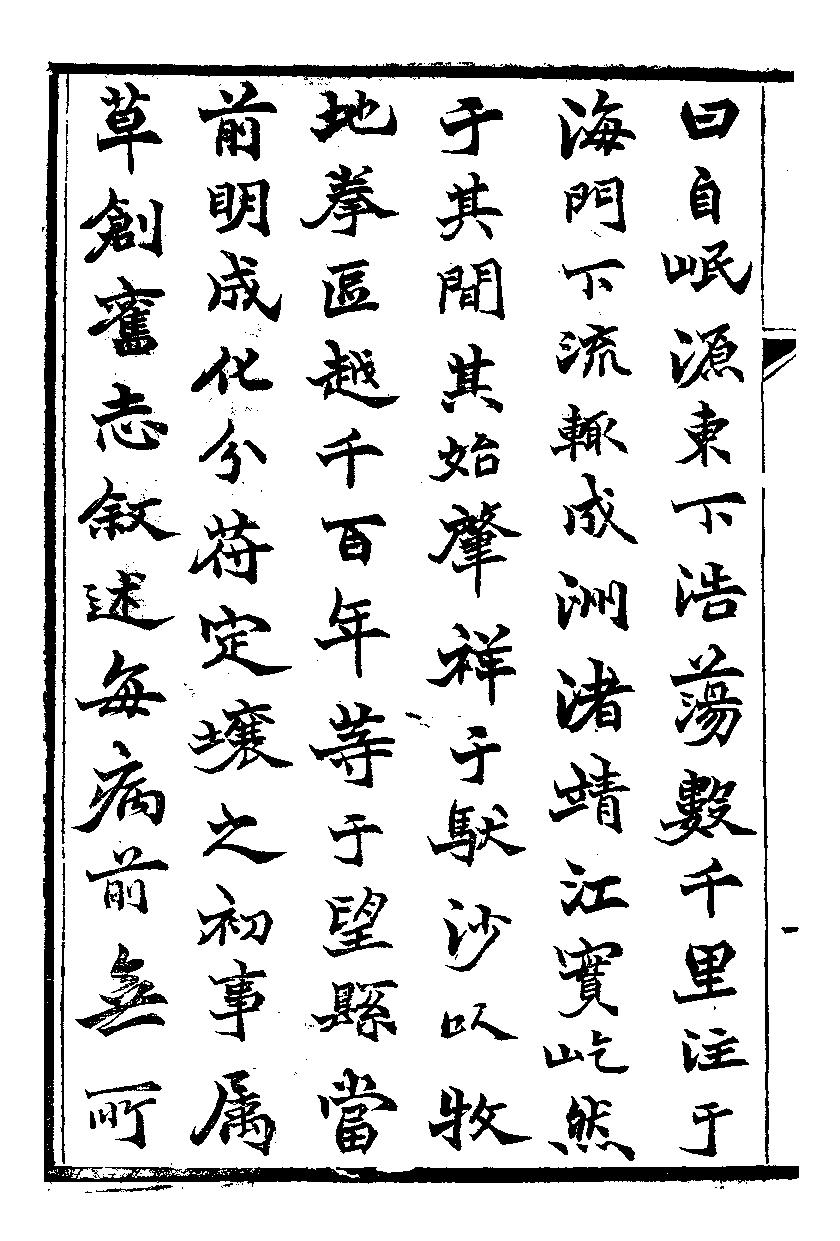 曰自岷源東下浩蕩數千里注于
海門下流輙成洲渚靖江實屹然
于其間其始肇祥于馱沙以牧
地拳區越千百年等于望縣當
前明成化分符定壤之初事属
草創奮志叙述每病前無所